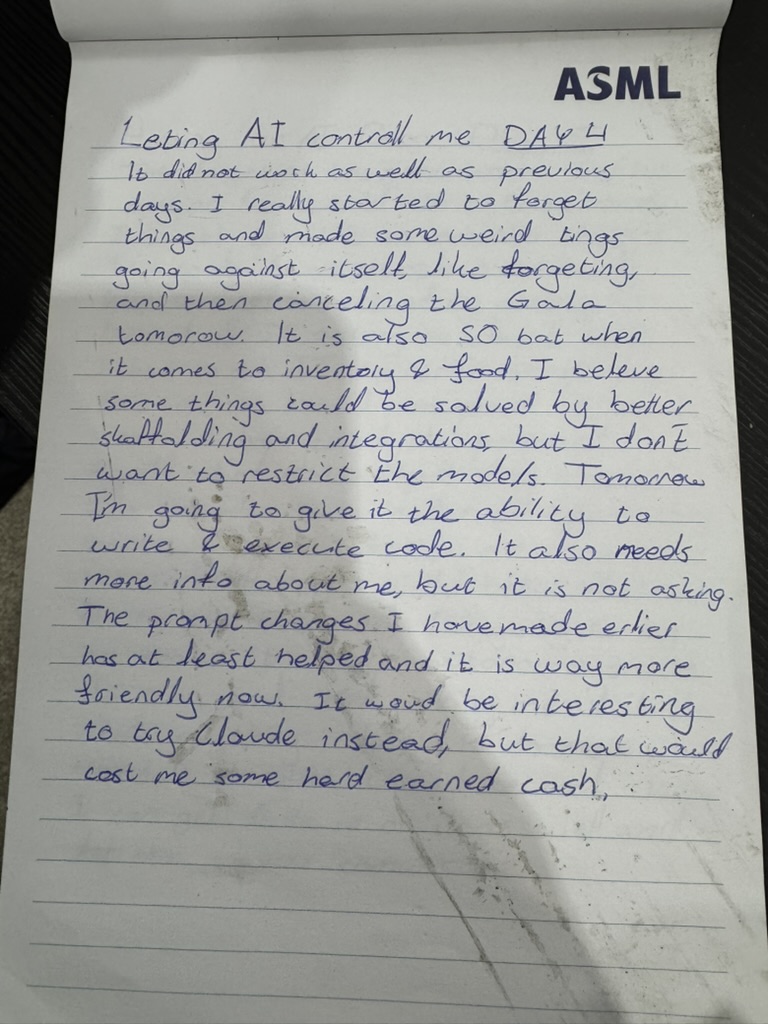 ASML
Leting AI controll me DAY 4
It did not work as well as previous
days. I really started to forget
things and made some weird tings
going against itself, like forgeting,
and then canceling the Gala
tomorow. It is also SO bat when
it comes to inventory & food. I beleve
some things could be solved by better
skaffolding and integrations, but I don't
want to restrict the models. Tomorrow
I'm going to give it the ability to
write & execute code. It also needs
more info about me, but it is not asking.
The prompt changes I have made erlier
has at least helped and it is way more
friendly now. It woud be interesting
to try Claude instead, but that would
cost me some hard earned cash,